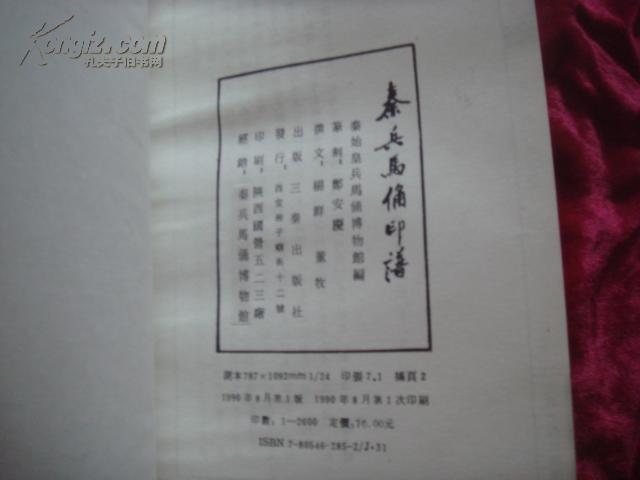 Kongfz.com
孔夫子旧书网
秦兵馬俑印譜
秦始皇兵馬俑博物館編
篆刻：鄭安慶
撰文：楊群 董牧
出版 三秦出版社
發行：
印刷：陝西國營五二三廠
經銷：秦兵馬俑博物館
開本787×1092mm1/24 印張7.1 插頁2
1990年8月第1版 1990年8月第1次印刷
印數：1—2600 定價：
ISBN 7-80546-285-2/J·31